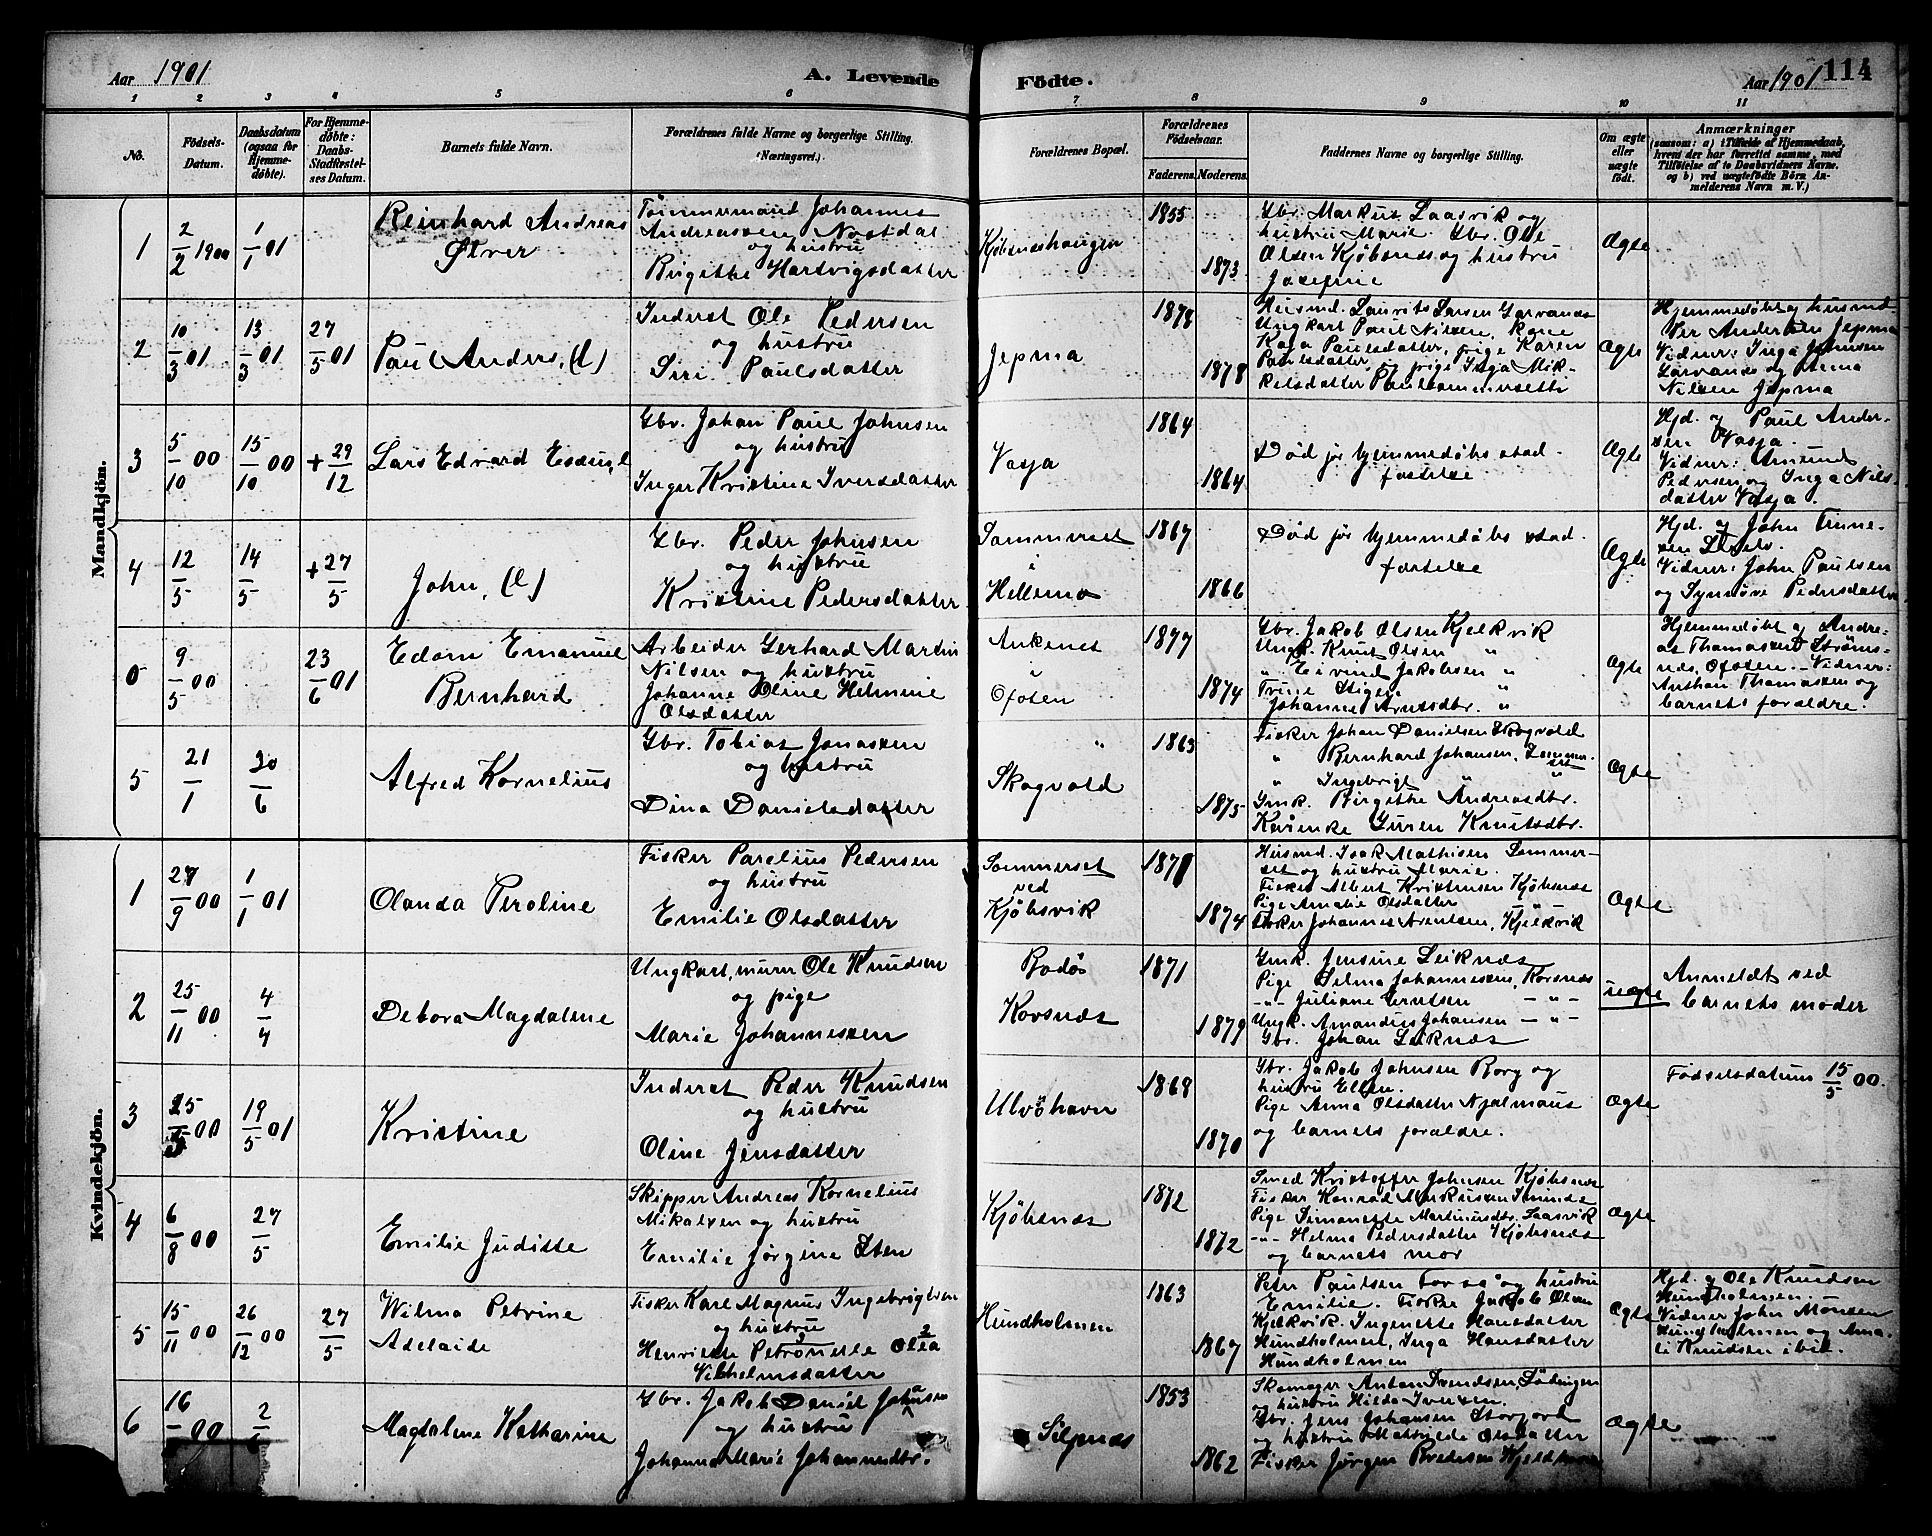 Aar 1901
A. Levende
Födte.
Aar 1901
114
1 2 3 4 5 6 7 8 9 10 11
No.
Födsels-
Datum.
Daabsdatum
(ogsaa for
Hjemme-
døbte).
For Hjemme-
døbte:
Daabs-
Stadfæstel-
ses Datum.
Barnets fulde Navn.
Forældrenes fulde Navne og borgerlige Stilling.
(Næringsvei.)
Forældrenes Bopæl.
Forældrenes
Fødselsaar.
Faderens. Moderens.
Faddernes Navne og borgerlige Stilling.
Om ægte
eller
uægte
født.
Anmærkninger
(saasom: a) i Tilfælde af Hjemmedaab,
hvem der har forrettet samme, med
Tilføielse af to Daabsvidners Navne,
og b) ved uægtefødte Börn An-
melderens Navn m. V.)
Mandkjön.
1
2/2 1900
1/1 01
Reinhard Andreas
Ølver
Tømmermand Johannes
Andreassen Nostdal
og hustru
Birgithe Hartvigsdatter
Kjøbsneshaugen
1855
1873
Gbr. Markus Saasvik og
hustru Marie. Gbr. Ole
Olsen Kjöbsnes og hustru
Josefine
Ægte
2
10/3 01
13/3 01
27/5 01
Paul Anders, (l)
Inderst Ole Pedersen
og hustru
Siri Paulsdatter
Jepma
1878
1878
Husmd. Laurits Larsen Garvanes
Ungkarl Paul Nilsen, kone
Kaja Paulsdatter, pige Karen
Paulsdatter og pige Inga Mik-
kelsdatter
Ægte
Hjemmedøbt af husmd.
Per Andersen Jepma
Vidner: Inga Johnsen
Garvanes og Anna
Nilsen Jepma
3
5/10 00
15/10 00
+ 29/12
Lars Edvard
Gbr. Johan Paul Johnsen
og hustru
Inger Kristine Iversdatter
Vasja
1864
1864
Død før hjemmedøbs stad-
fæstelse
Ægte
Hjd. af Paul Ander-
sen Vasja.
Vidner: Amund
Pedersen og Inga Nils-
datter Vasja.
4
12/5
14/5
+ 27/5
John, (l)
Gbr. Peder Johnsen
og hustru
Kristine Pedersdatter
Sommerset
i
Hellemo
1867
1866
Død før hjemmedøbs stad-
fæstelse
Ægte
Hjd. af John Finne-
sen
Vidner: John Paulsen
og Synnøve Pedersdatter
0
9/5 00
23/6 01
Edom Emanuel
Bernhard
Arbeider Gerhard Martin
Nilsen og hustru
Johanne Oline Helmine
Olsdatter
Ankenes
i
Ofoten
1877
1874
Gbr. Jakob Olsen Kjelkvik
Ungk. Knut Olsen "
" Eivind Jakobsen "
Trine Stigen "
Johanne Arntsdtr. "
Ægte
Hjemmedøbt af Andre-
as Thomassen Strøms-
nes, Ofoten. - Vidner:
Anthon Thomassen og
barnets forældre.
5
21/1
30/6
Alfred Kornelius
Gbr. Tobias Jonassen
og hustru
Dina Danielsdatter
"
Skogvold
1863
1875
Fisker Johan Danielsen Skogvold
" Bernhard Johansen, Sommer-
set
" Ingebrigt " "
Gmk. Birgithe Andreasdtr.
Karenke Guren Knutsdtr.
Ægte
Kvindekjön.
1
27/9 00
1/1 01
Olanda Peroline
Fisker Parelius Pedersen
og hustru
Emilie Olsdatter
Sommerset
ved
Kjøbsvik
1871
1874
Husmd. Isak Mathisen Sommer-
set og hustru Marie.
Fisker Albert Kristensen Kjøbsnes
Pige Amalie Olsdatter "
Fisker Johannes Arentsen, Kjelkvik
Ægte
2
25/11 00
4/4
Debora Magdalene
Ungkarl, murer Ole Knudsen
og pige
Marie Johannessen
Bodø
Korsnæs
1871
1879
Gmk. Jensine Leiknes
Pige Selma Johannessen, Korsnæs
-"- Juliane Erntsen -"-
Ungk. Amandus Johansen -"-
Gbr. Johan Leiknæs
uægte
Anmeldt ved
barnets moder
3
25/5 00
19/5 01
Kristine
Inderst Peder Knudsen
og hustru
Oline Jensdatter
Ulvöhavn
1868
1870
Gbr. Jakob Johnsen Rorg og
hustru Ellen.
Pige Anna Olsdatter Njalmaus
og barnets forældre.
Ægte
Fødselsdatum 15/5 00.
4
6/8 00
27/5
Emilie Juditte
Skipper Andreas Kornelius
Mikalsen og hustru
Emilie Jørgine Sten
Kjøbsnæs
1872
1872
Smed Kristoffer Johnsen Kjøbsnæs
Fisker Konrad Markussen
Pige Simonette Martinusdtr. Saasvik
-"- Helma Pedersdatter Kjøbsnæs
og barnets mor
Ægte
5
15/11 00
26/12 00
27/5
Wilma Petrine
Adelaide
Fisker Karl Magnus Ingebrigtsen
og hustru
Henriette Petronelle Olea
Vilhelmsdatter
Hundholmen
1863
1867
Peter Paulsen Forsaa og hustru
Emilie. Fisker Jakob Olsen
Kjelkvik. Ingenette Hansdatter
Hundholmen, Inga Hansdatter
Hundholmen
Ægte
Hjd. af Ole Knudsen
Hundholmen. -
Vidner John Monsen
Hundholmen og Ama-
li Knudsen ibid.
6
16
00
2
Magdalene Katharine
Gbr. Jakob Daniel Johansen
og hustru
Johanna Marie Johannesdtr.
Selpnæs
1853
1862
Skomager Anton Svendsen, Lødingen
og hustru Hilda Iversen.
Gbr. Jens Johansen Storjord
og hustru Mathilde Olsdatter
Fisker Jørgen Bredesen
Ægte